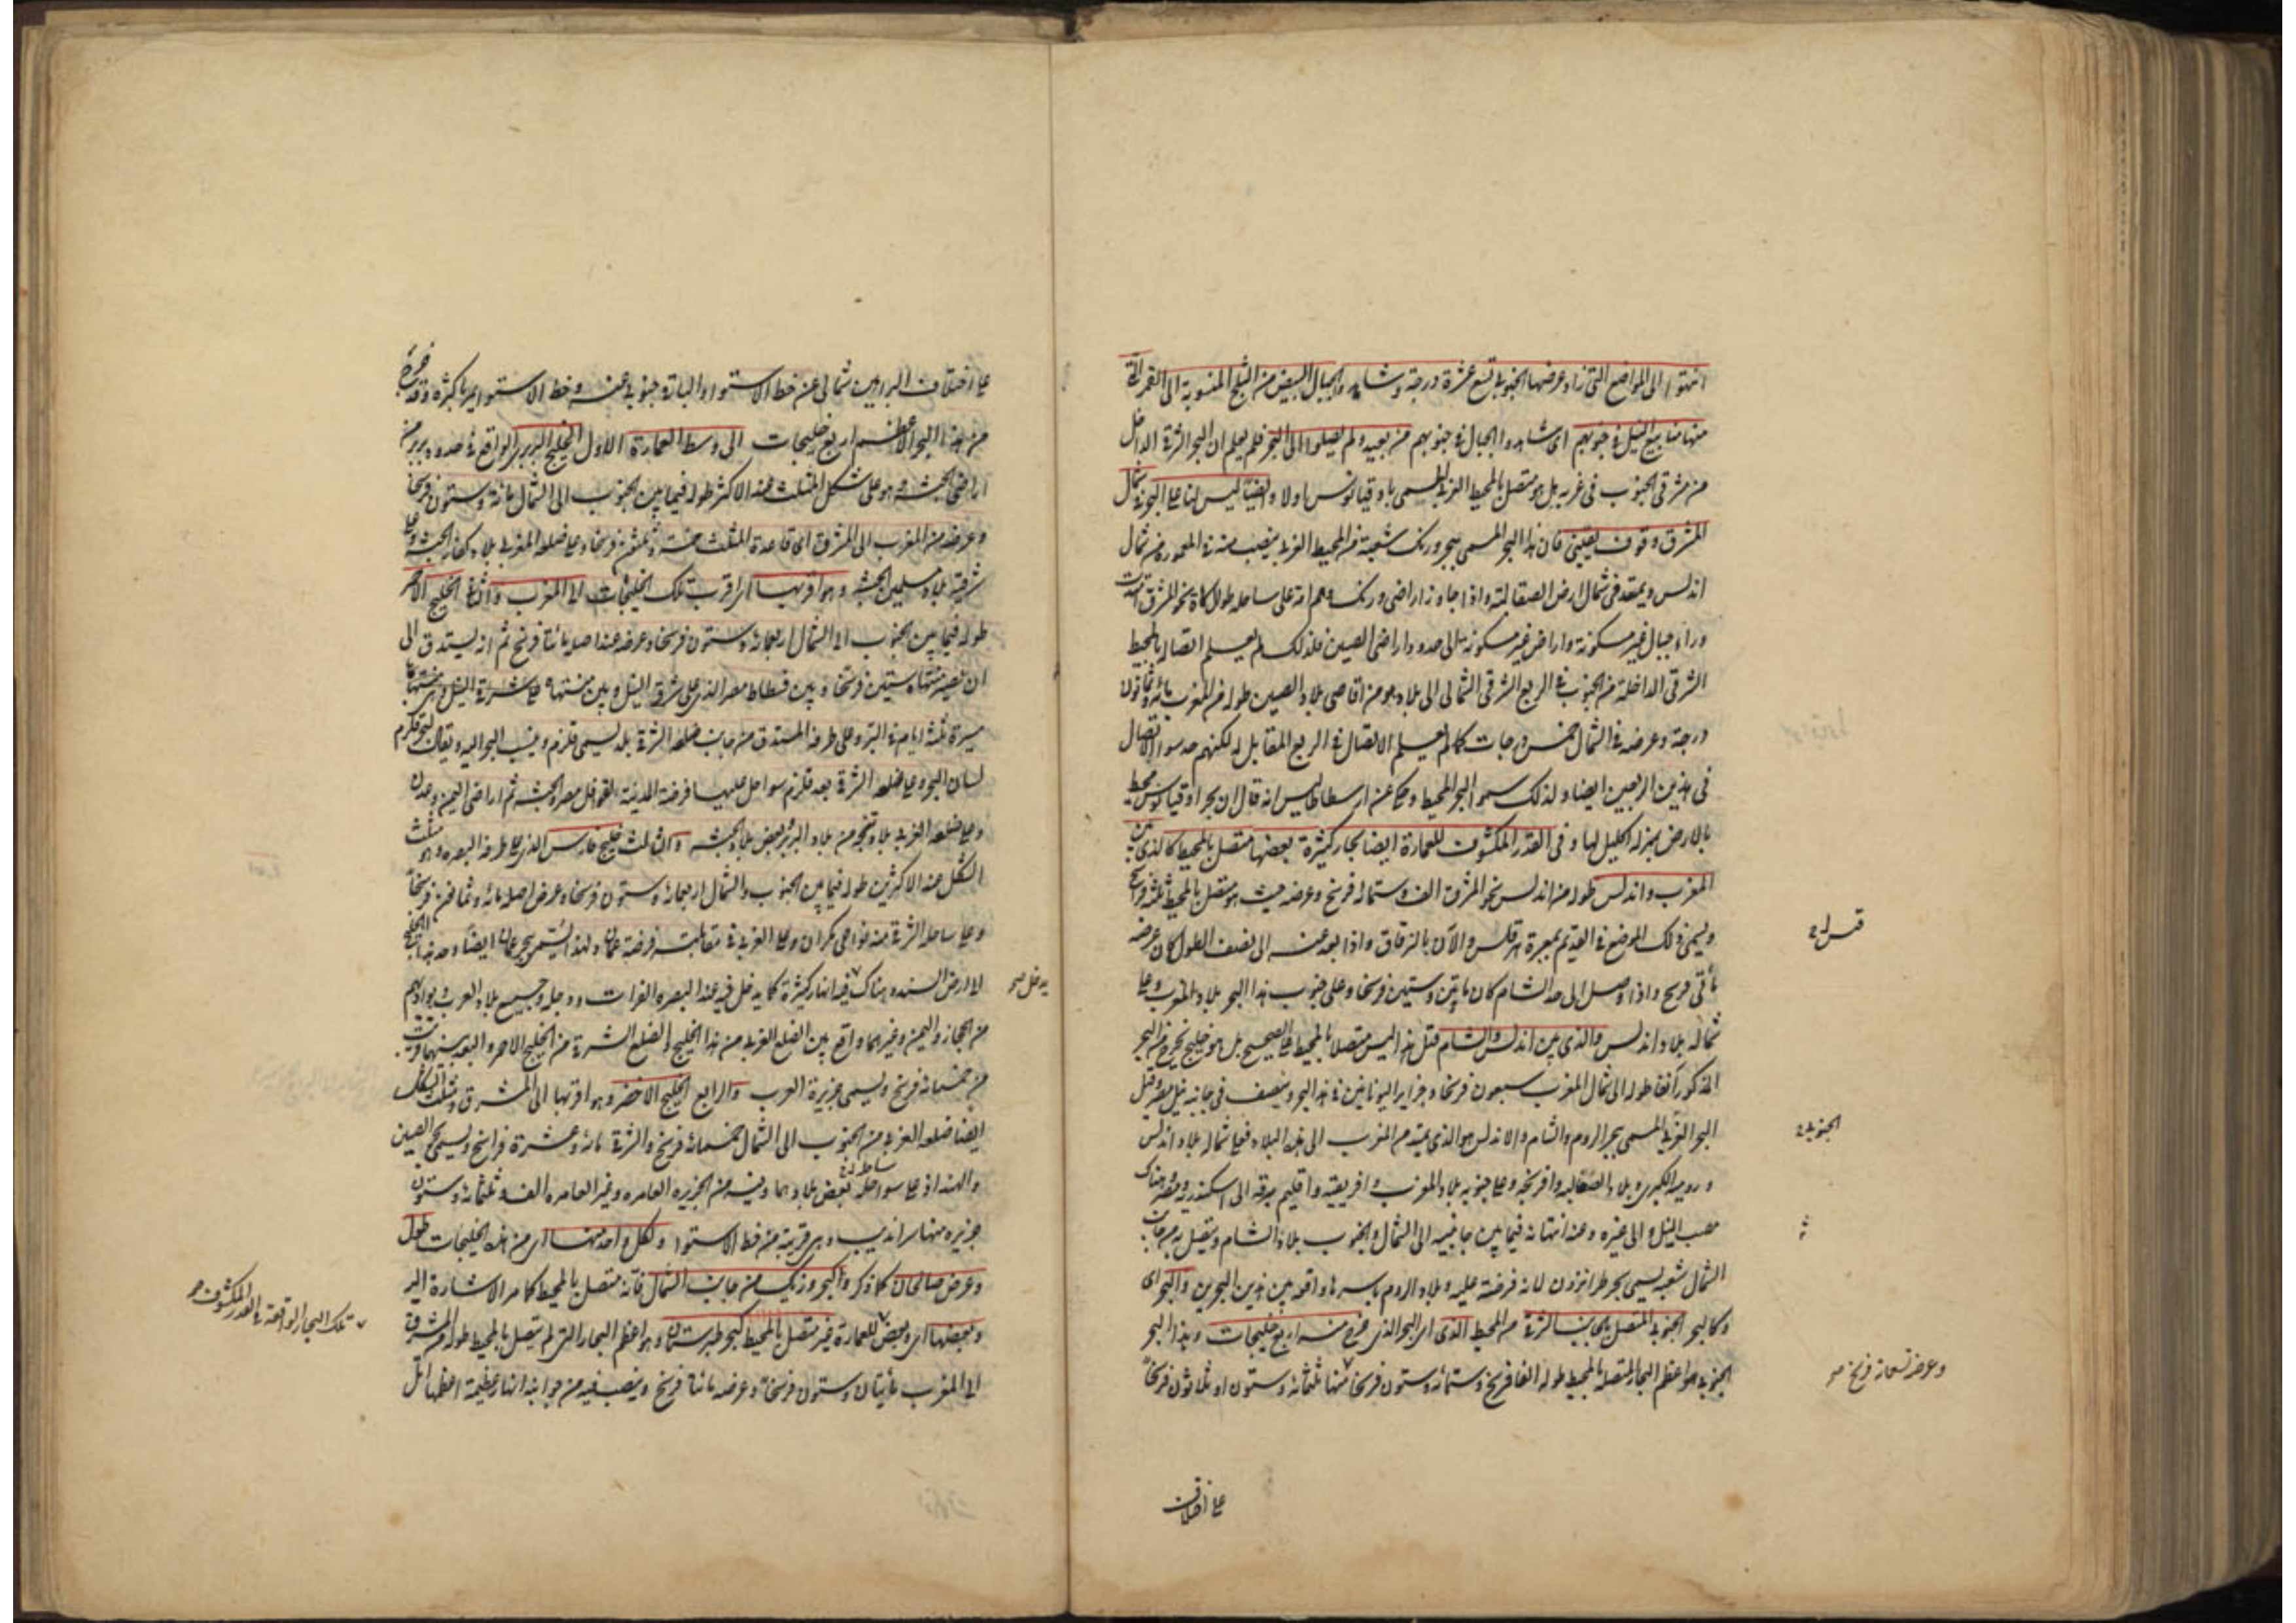 انتهوا الى المواضع التى زاد عرضها الجنوبى تسع عشرة درجة وشاهدوا الجبال البيض من الثلج المنسوبة الى القمر التى
منها منابيع النيل فى جنوبهم اى شاهدوا الجبال فى جنوبهم من بعيد ولم يصلوا الى البحر فلم يعلم ان البحر الشرقى الداخل
من مشرقى الجنوب فى غربه بل هو متصل بالمحيط الغربى المسمى باوقيانوس اولا وايضا ليس لنا على البحر فى شمال
المشرق وقوف يقينى فان هذا البحر المسمى ببحر ورنك شعبة من المحيط الغربى ينصب منه فى المعمورة من شمال
اندلس ويمتد فى شمال ارض الصقالبة واذا جاوز اراضى ورنك وهم امة على ساحله طوال كاة نحو المشرق امتدت
وراء جبال غير مسكونة واراض غير مسكونة الى حدود اراضى الصين فلذلك لم يعلم اتصاله بالمحيط
الشرقى الداخلة من الجنوب فى الربع الشرقى الشمالى الى بلاد هو من اقاصى بلاد الصين طوله من المغرب مائة وثمانون
درجة وعرضه فى الشمال خمس درجات كما لم يعلم الاتصال فى الربع المقابل له لكنهم حدسوا الاتصال
فى هذين الربعين ايضا ولذلك سموا البحر المحيط وحكى عن ارسطاطاليس انه قال ان بحر اوقيانوس محيط
بالارض بمنزلة اكليل لها وفى القدر المكشوف للعمارة ايضا بحار كثيرة بعضها متصل بالمحيط كالذى بين
المغرب واندلس طوله من اندلس نحو المشرق الف وستمائة فرسخ وعرضه حيث هو متصل بالمحيط ثلثة فراسخ
ويسمى ذلك الموضع فى القديم بمعبرة هرقلس والآن بالزقاق واذا بعد عنه الى نصف الطول كان عرضه
مأتى فرسخ واذا وصل الى حد الشام كان مأتين وستين فرسخا وعلى جنوب هذا البحر بلاد المغرب وعلى
شماله بلاد اندلس والذى بين اندلس والشام قيل هذا ليس متصلا بالمحيط على الصحيح بل هو خليج يخرج من البحر
المذكور آنفا طوله الى شمال المغرب سبعون فرسخا وجزاير اليونانيين فى هذا البحر وينصف فى جانبه نيل مصر وقيل
البحر الغربى المسمى ببحر الروم والشام والاندلس هو الذى يمتد من المغرب الى هذه البلاد فعلى شماله بلاد اندلس
ورومية الكبرى وبلاد الصقالبه وافرنجه وعلى جنوبه بلاد المغرب وافريقية واقليم برقه الى اسكندرية ومصر هناك
مصب النيل والى غيره وعند انتهائه فيما بين جانبيه الى الشمال والجنوب بلاد الشام ويتصل به من جانب
الشمال شعبة يسمى بحر طرابزون لانه فرضته عليه وبلاد الروم باسرها واقعه بين هذين البحرين والبحر اى
وكالبحر الجنوبى المتصل بالجانب الشرقى من المحيط الذى اى البحر الذى خرج منه اربع خليجات وهذا البحر
الجنوبى هو اعظم البحار المتصلة بالمحيط طوله الفا فرسخ وستمائة وستون فرسخا منها ثلثمائة وستون او ثلاثون فرسخا
الجنوبى
وعرضه تسعمائة فرسخ صح
على اختلاف
على اختلاف البراهين شمالى عن خط الاستواء والباقى جنوبى عنه وخط الاستواء يمر باكثره وقد خرج
من هذا البحر الاعظم اربع خليجات الى وسط العمارة الاول الخليج البربرى الواقع فى حدود بربر من
اراضى الحبشه وهو على شكل المثلث عند الاكثر طوله فيما بين الجنوب الى الشمال مائة وستون فرسخا
وعرضه من المغرب الى المشرق اى قاعدة المثلث خمسة وثلثون فرسخا وعلى ضلعه الغربى بلاد كفار الحبشة وعلى
شرقية بلاد مسلمين الحبشه وهو اقربها اى اقرب تلك الخليجات الى المغرب والثانى الخليج الاحمر
طوله فيما بين الجنوب الى الشمال اربعمائة وستون فرسخا وعرضه عند اصله مائتا فرسخ ثم انه يستدق الى
ان يصير منتهاه ستين فرسخا وبين فسطاط مصر الذى على شرق النيل وبين منتهاه على شرقى النيل اى منتهاها
مسيرة ثلثة ايام فى البر وعلى طرفه المستدق من جانب ضلعه الشرقى بلد يسمى قلزم وينسب البحر اليه ويقال لبحر قلزم
لسان البحر وعلى ضلعه الشرقى بعد قلزم سواحل عليها فرضة المدينة لقوافل مصر والحبشه ثم اراضى اليمن وعدن
وعلى ضلعه الغربى بلاد بجه من بلاد البربر وبعض بلاد الحبشه والثالث خليج فارس الذى على طرفه البصره وهو مثلث
الشكل عند الاكثرين طوله فيما بين الجنوب والشمال اربعمائة وستون فرسخا وعرض اصله مائة وثمانون فرسخا
وعلى ساحله الشرقى منه نواحى مكران وعلى الغربى فى مقابلته فرضة عمان ولهذا يسمى ببحر عمان ايضا وحد هذا الخليج
الى ارض السند وهناك فيه انهار كثيرة كما يدخل فيه عند البصره الفرات ودجله وجميع بلاد العرب وبواديهم
من الحجاز واليمن وغيرهما واقع بين الضلع الغربى من هذا الخليج والضلع الشرقى من الخليج الاحمر والبعد بينهما قريب
من خمسمائة فرسخ ويسمى جزيرة العرب والرابع الخليج الاخضر وهو اقربها الى المشرق ومثلث الشكل
ايضا ضلعه الغربى من الجنوب الى الشمال خمسمائة فرسخ والشرقى مائة وعشرة فراسخ ويسمى بحر الصين
والهند اذ على سواحله بعض بلادهما وفيه من الجزيره العامره وغير العامره الف وثلثمائة وستون
جزيره منها سرانديب وهى قريبة من خط الاستواء ولكل واحد منها اى من هذه الخليجات طول
وعرض صالحان كما ذكر والبحر ورنك من جانب الشمال فانه متصل بالمحيط كما مر الاشارة اليه
وبعضها اى وبعض للعمارة غير متصل بالمحيط كبحر طبرستان وهو اعظم البحار التى لم يتصل بالمحيط طوله من المشرق
الى المغرب مأيتان وستون فرسخا وعرضه مائتا فرسخ وينصب فيه من جوانبه انهار عظيمة اعظمها اتل
يدخل صح
تلك البحار الواقعة فى القدر المكشوف صح